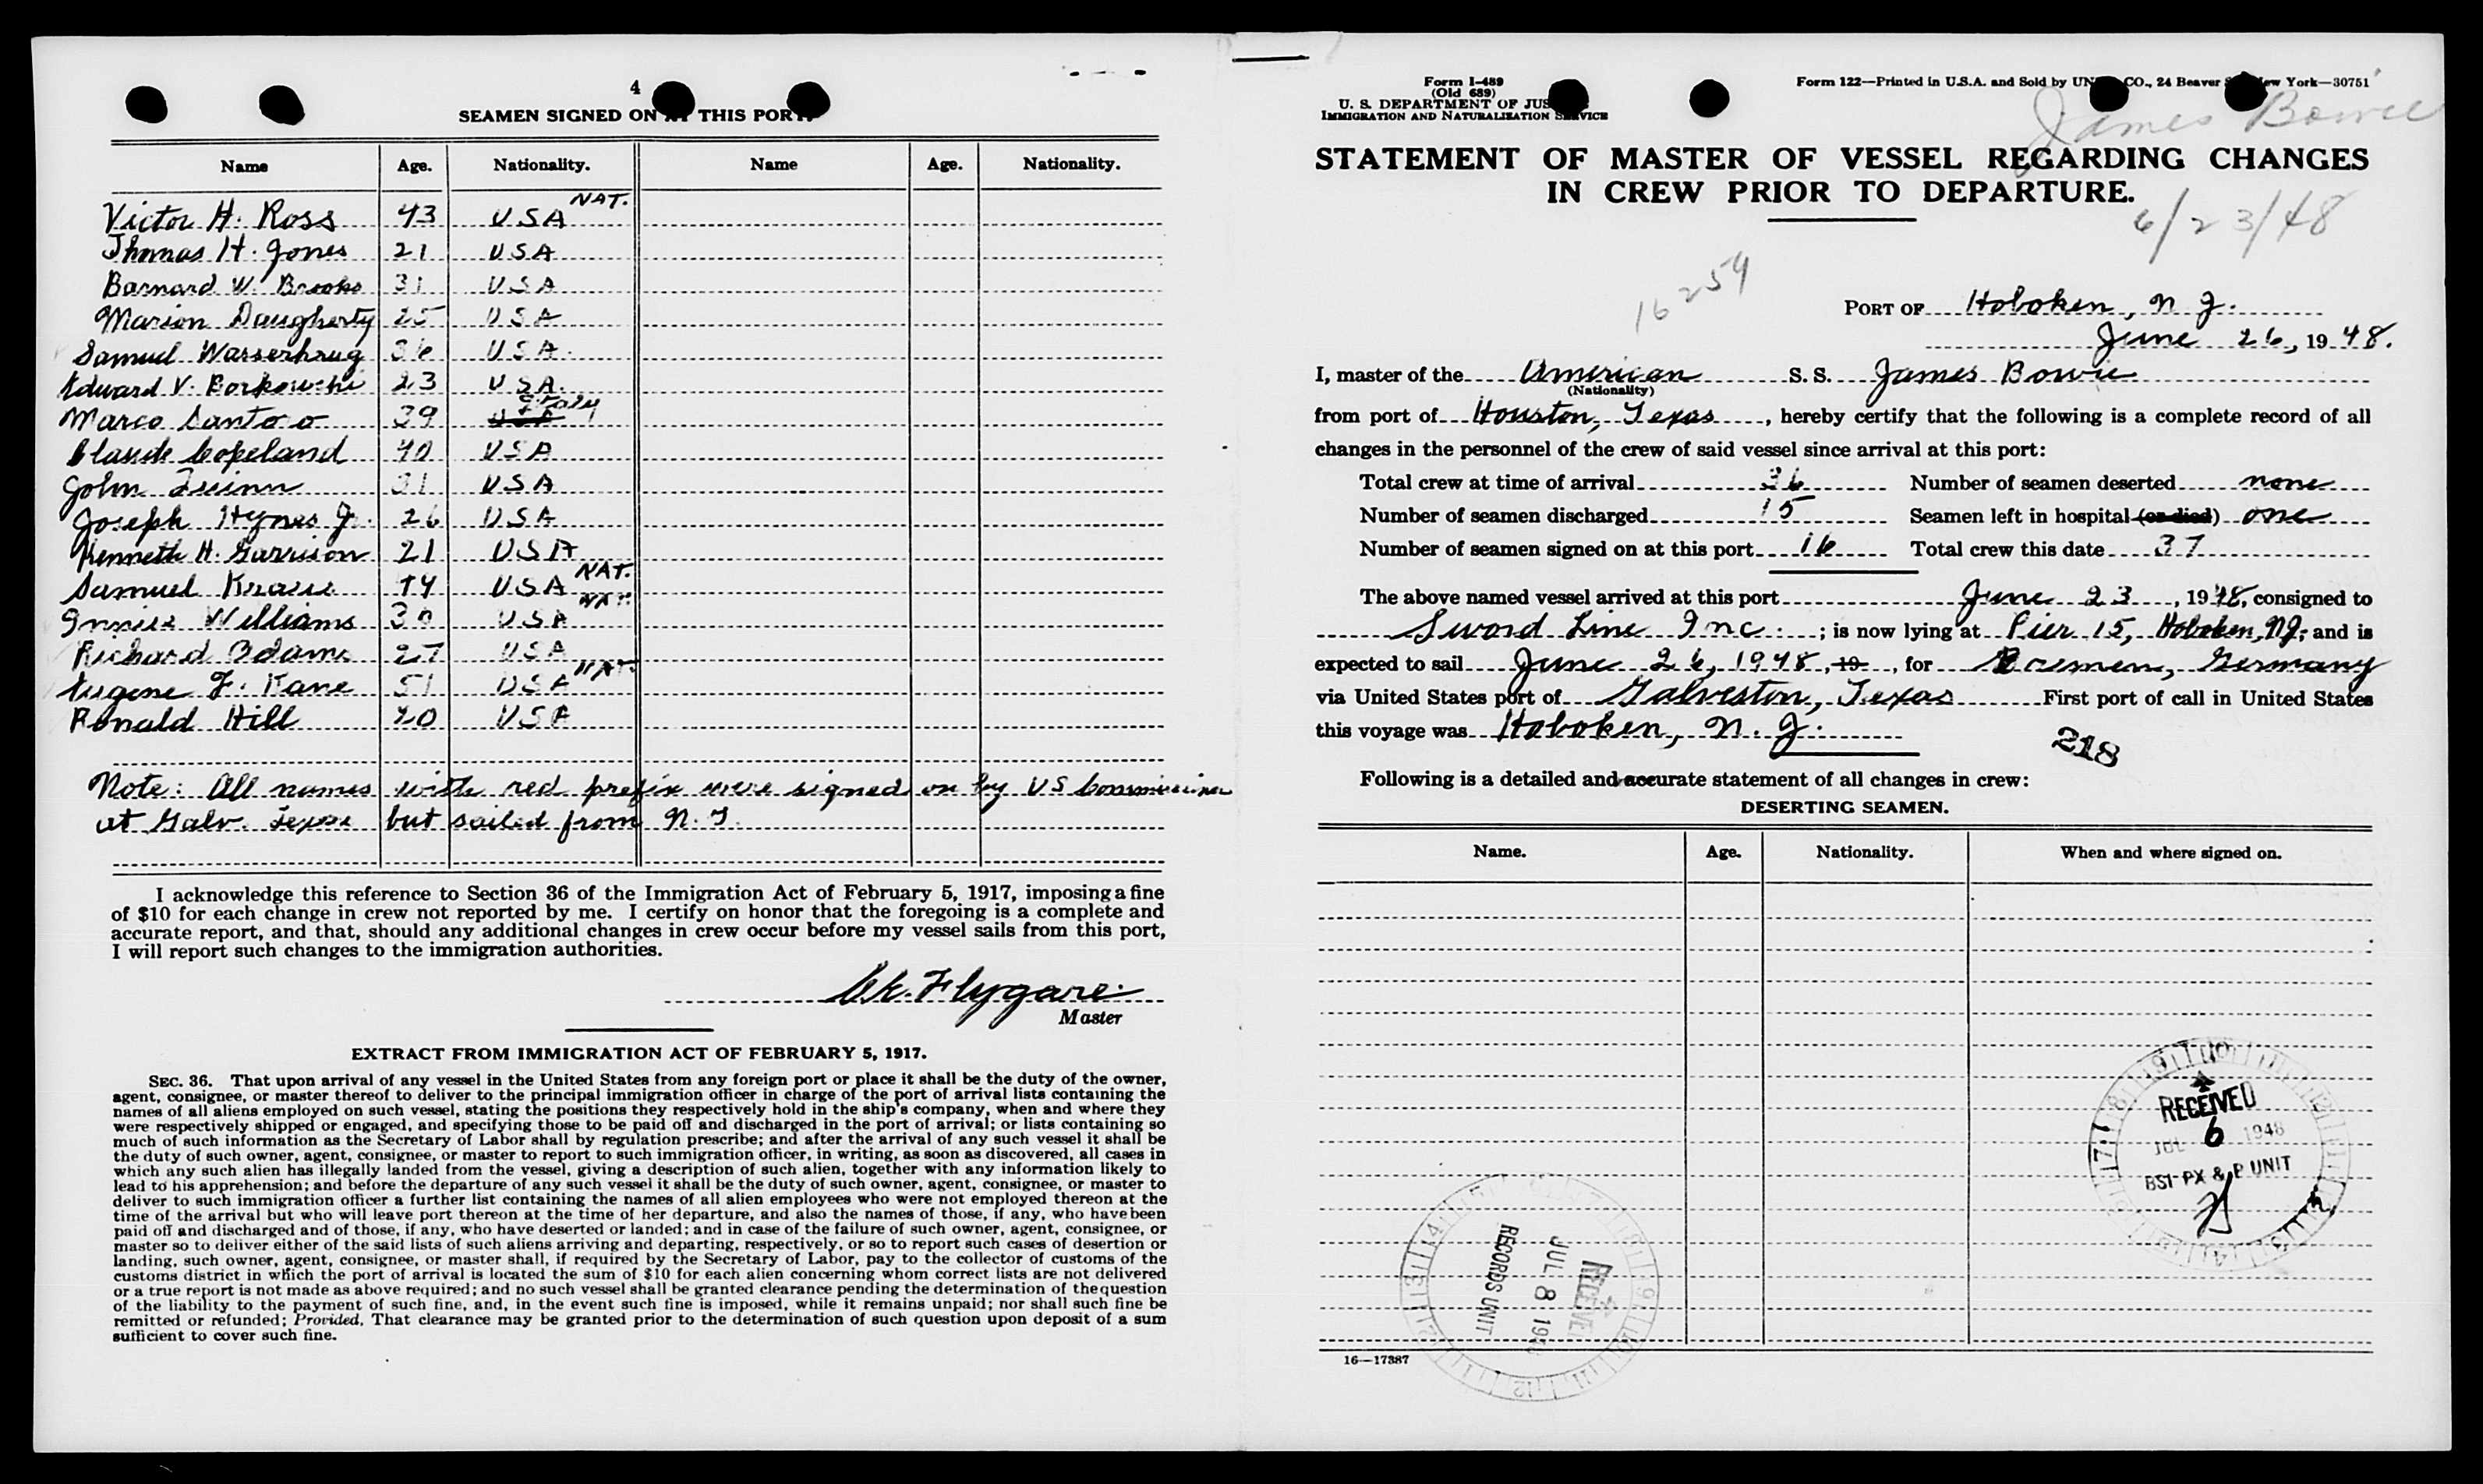 4
SEAMEN SIGNED ON AT THIS PORT.
Name Age. Nationality. Name Age. Nationality.
Victor H. Ross 43 USA NAT.
Thomas H. Jones 21 USA
Barnard W. Brooks 31 USA
Marion Daugherty 25 USA
Samuel Wasserkrug 36 USA.
Edward V. 23 USA.
Marco Santoro 39 Italy
Claude Copeland 40 USA
John Quinn 31 USA
Joseph Hynes Jr. 26 USA
Kenneth H. Garrison 21 USA
Samuel Krause 44 USA NAT.
Williams 30 USA NAT.
Richard Adams 27 USA
Eugene F. Kane 51 USA NAT.
Ronald Hill 20 USA
Note: All names with red prefix were signed on by US Commissioner
at Galv. Texas but sailed from N.J.
I acknowledge this reference to Section 36 of the Immigration Act of February 5, 1917, imposing a fine
of $10 for each change in crew not reported by me. I certify on honor that the foregoing is a complete and
accurate report, and that, should any additional changes in crew occur before my vessel sails from this port,
I will report such changes to the immigration authorities.
Flygare
Master
EXTRACT FROM IMMIGRATION ACT OF FEBRUARY 5, 1917.
SEC. 36. That upon arrival of any vessel in the United States from any foreign port or place it shall be the duty of the owner,
agent, consignee, or master thereof to deliver to the principal immigration officer in charge of the port of arrival lists containing the
names of all aliens employed on such vessel, stating the positions they respectively hold in the ship's company, when and where they
were respectively shipped or engaged, and specifying those to be paid off and discharged in the port of arrival; or lists containing so
much of such information as the Secretary of Labor shall by regulation prescribe; and after the arrival of any such vessel it shall be
the duty of such owner, agent, consignee, or master to report to such immigration officer, in writing, as soon as discovered, all cases in
which any such alien has illegally landed from the vessel, giving a description of such alien, together with any information likely to
lead to his apprehension; and before the departure of any such vessel it shall be the duty of such owner, agent, consignee, or master to
deliver to such immigration officer a further list containing the names of all alien employees who were not employed thereon at the
time of the arrival but who will leave port thereon at the time of her departure, and also the names of those, if any, who have been
paid off and discharged and of those, if any, who have deserted or landed; and in case of the failure of such owner, agent, consignee, or
master so to deliver either of the said lists of such aliens arriving and departing, respectively, or so to report such cases of desertion or
landing, such owner, agent, consignee, or master shall, if required by the Secretary of Labor, pay to the collector of customs of the
customs district in which the port of arrival is located the sum of $10 for each alien concerning whom correct lists are not delivered
or a true report is not made as above required; and no such vessel shall be granted clearance pending the determination of the question
of the liability to the payment of such fine, and, in the event such fine is imposed, while it remains unpaid; nor shall such fine be
remitted or refunded; Provided, That clearance may be granted prior to the determination of such question upon deposit of a sum
sufficient to cover such fine.
Form I-489
(Old 689)
U. S. DEPARTMENT OF JUSTICE
IMMIGRATION AND NATURALIZATION SERVICE
Form 122—Printed in U.S.A. and Sold by UN CO., 24 Beaver New York—30751
James Bowie
STATEMENT OF MASTER OF VESSEL REGARDING CHANGES
IN CREW PRIOR TO DEPARTURE.
6/23/48
16259
PORT OF Hoboken, N. J.
June 26, 1948.
I, master of the American S. S. James Bowie
(Nationality)
from port of Houston, Texas, hereby certify that the following is a complete record of all
changes in the personnel of the crew of said vessel since arrival at this port:
Total crew at time of arrival 36 Number of seamen deserted none
Number of seamen discharged 15 Seamen left in hospital (or died) one
Number of seamen signed on at this port 16 Total crew this date 37
The above named vessel arrived at this port June 23, 1948, consigned to
Sword Line Inc.; is now lying at Pier 15, Hoboken, NJ; and is
expected to sail June 26, 1948, 19, for Bremen, Germany
via United States port of Galveston, Texas First port of call in United States
this voyage was Hoboken, N. J.
218
Following is a detailed and accurate statement of all changes in crew:
DESERTING SEAMEN.
Name. Age. Nationality. When and where signed on.
RECEIVED
JUL 6 1948
BSI-PX & P UNIT
RECEIVED
JUL 8 1948
RECORDS UNIT
16—17387